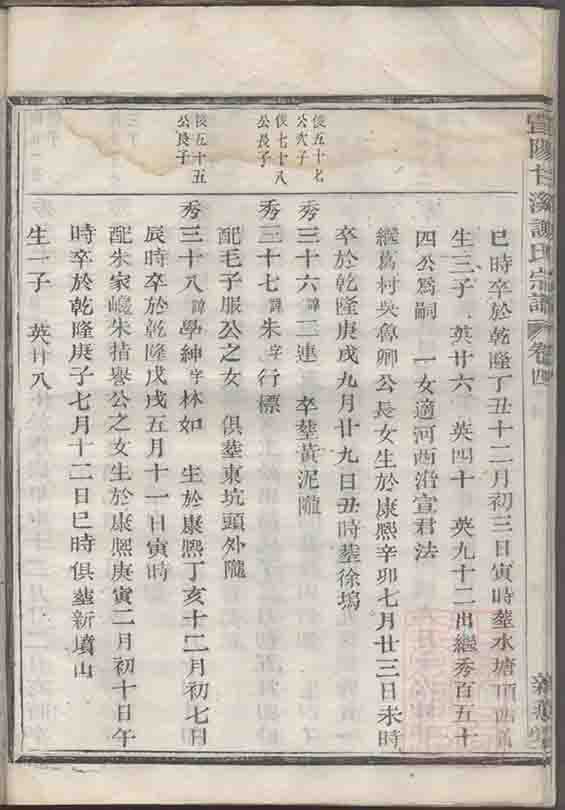 陽甘溪謝氏宗譜
卷四
巳時卒於乾隆丁丑十二月初三日寅時塟水塘
生三子 英廿六 英四十 英九十二出繼秀百五十
四公爲嗣 一女適河西沿宣君法
繼葛村吳魯卿公長女生於康熙辛卯七月廿三日未時
卒於乾隆庚戌九月廿九日丑時塟徐塢
俊五十七
公次子
秀三十六諱三連 卒塟黃泥隴
俊七十八
公長子
秀三十七諱朱字行標
配毛子服公之女 俱塟東坑頭外隴
俊五十五
公長子
秀三十八諱學紳字林如 生於康熙丁亥十二月初七日
辰時卒於乾隆戊戌五月十一日寅時
配朱家㘰朱搢譽公之女生於康熙庚寅二月初十日午
時卒於乾隆庚子七月十二日巳時俱塟新墳山
生一子 英廿八